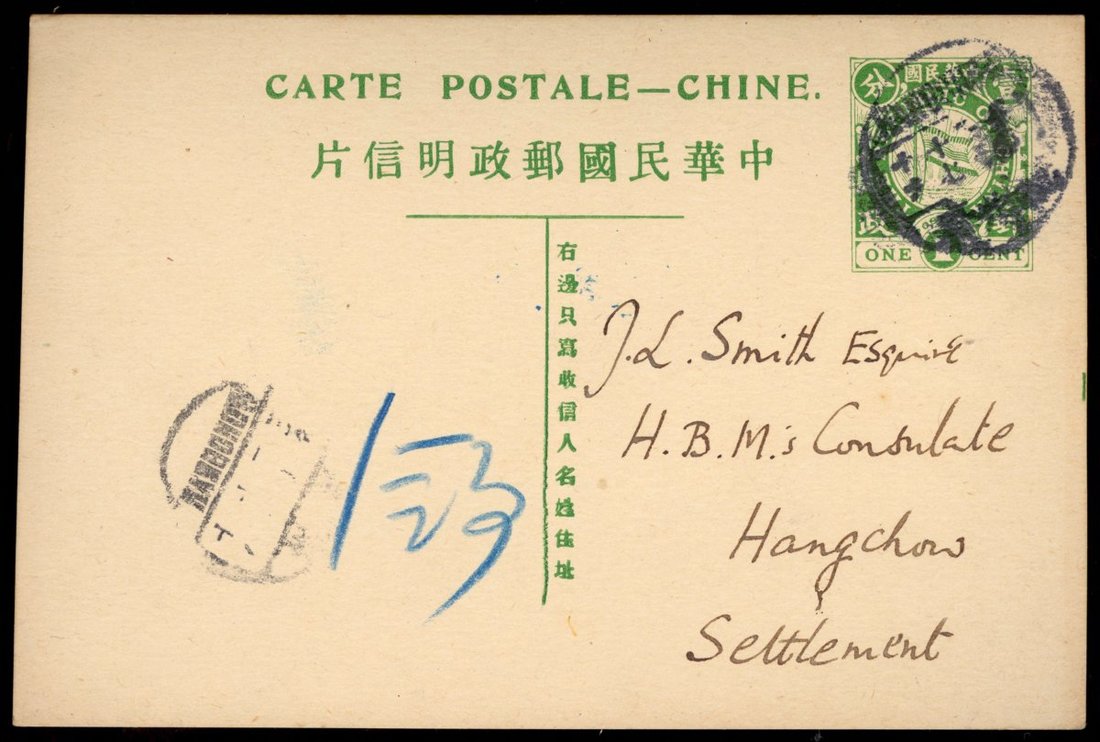 CARTE POSTALE—CHINE.
中華民國郵政明信片
分 中華民國 壹
政 郵
ONE 1 CENT
右邊只寫收信人名姓住址
J. L. Smith Esquire
H. B. M.'s Consulate
Hangchow
Settlement
HANGCHOW